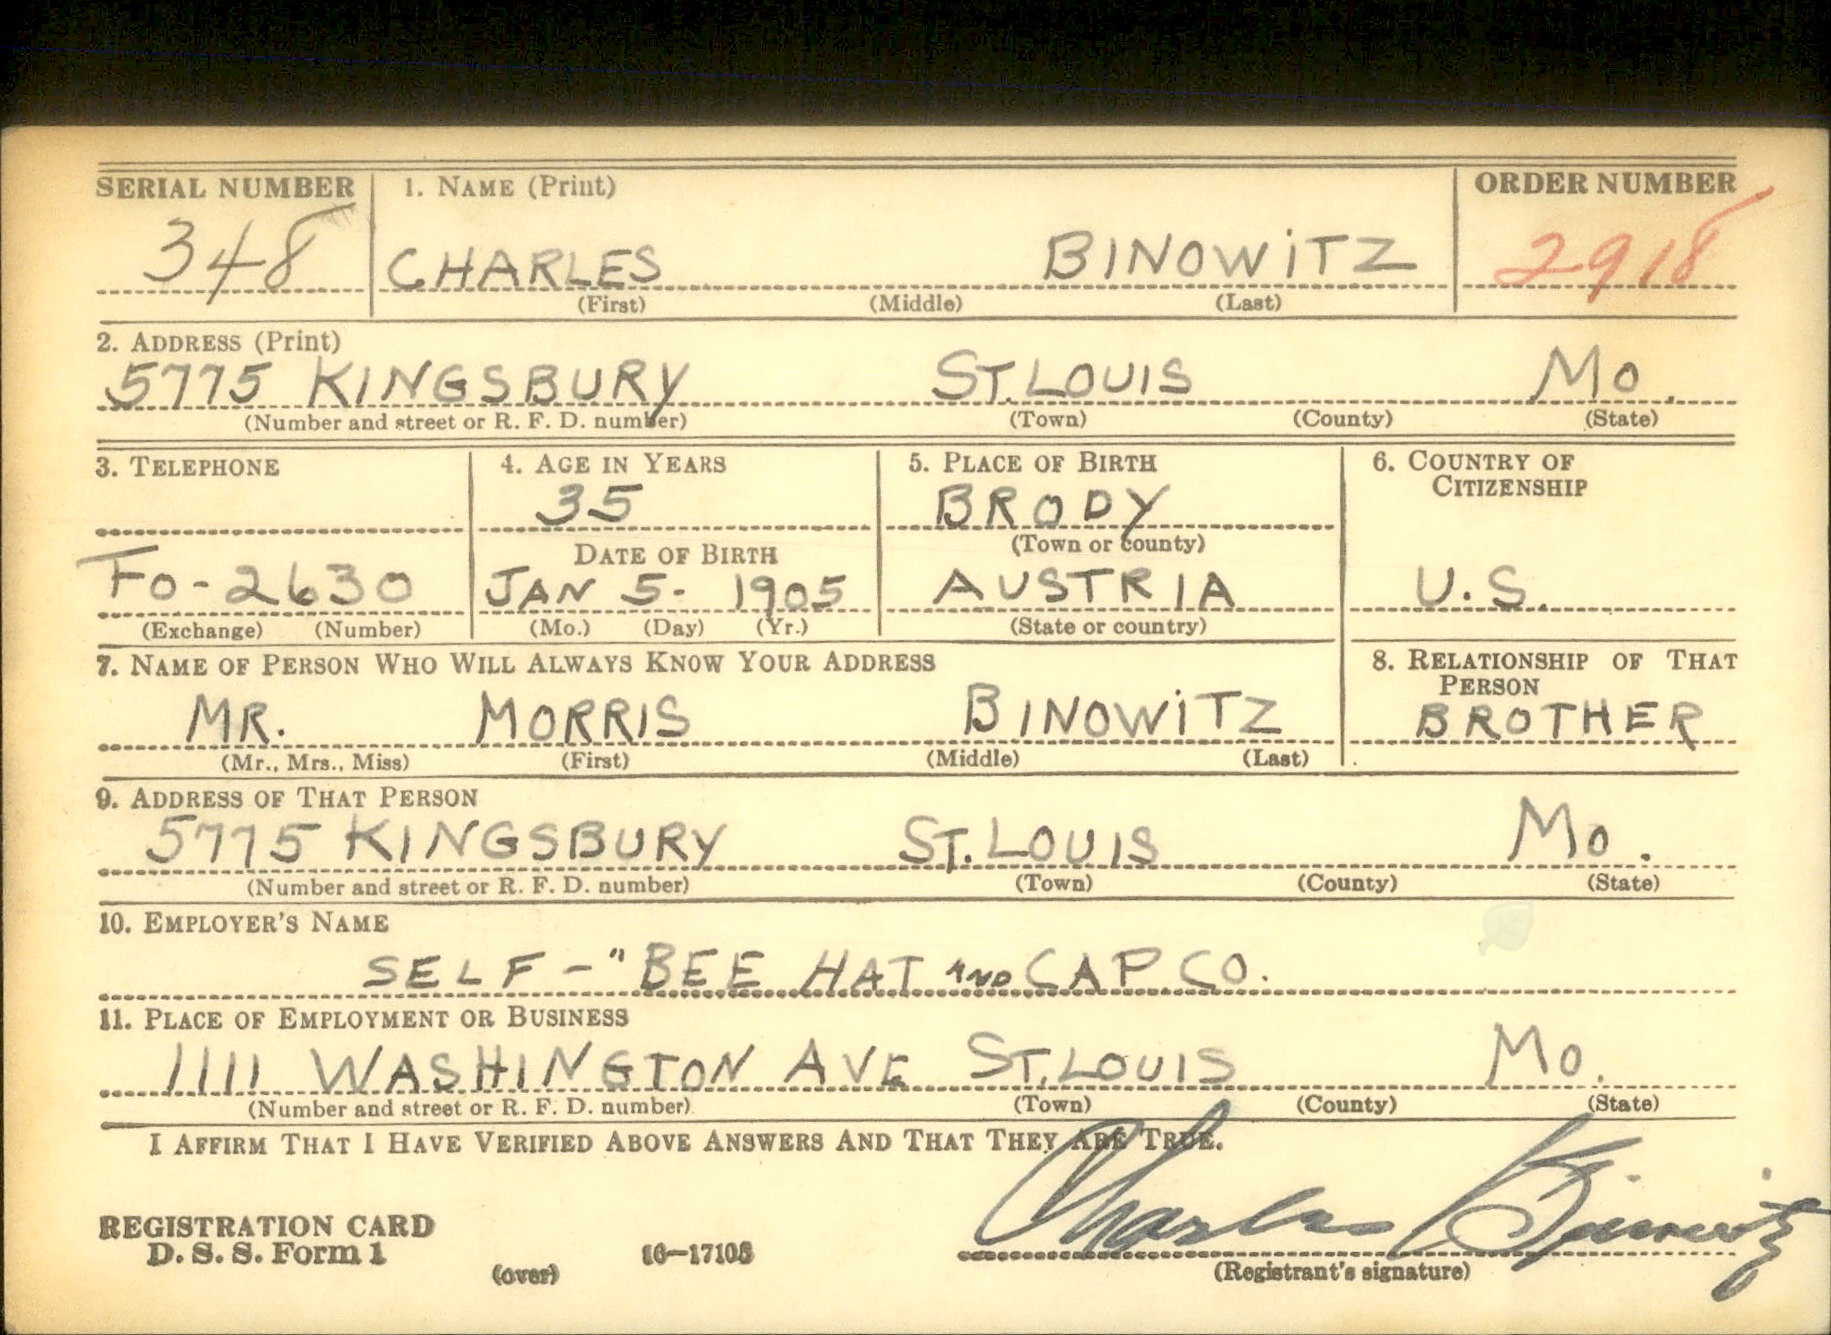 SERIAL NUMBER 1. NAME (Print) ORDER NUMBER
348 CHARLES BINOWITZ 2918
(First) (Middle) (Last)
2. ADDRESS (Print)
5775 KINGSBURY ST. LOUIS MO.
(Number and street or R. F. D. number) (Town) (County) (State)
3. TELEPHONE 4. AGE IN YEARS 5. PLACE OF BIRTH 6. COUNTRY OF
CITIZENSHIP
35 BRODY
DATE OF BIRTH (Town or county)
FO-2630 JAN 5- 1905 AUSTRIA U.S.
(Exchange) (Number) (Mo.) (Day) (Yr.) (State or country)
7. NAME OF PERSON WHO WILL ALWAYS KNOW YOUR ADDRESS 8. RELATIONSHIP OF THAT
PERSON
MR. MORRIS BINOWITZ BROTHER
(Mr., Mrs., Miss) (First) (Middle) (Last)
9. ADDRESS OF THAT PERSON
5775 KINGSBURY ST. LOUIS MO.
(Number and street or R. F. D. number) (Town) (County) (State)
10. EMPLOYER'S NAME
SELF - "BEE HAT AND CAP CO.
11. PLACE OF EMPLOYMENT OR BUSINESS
1111 WASHINGTON AVE ST. LOUIS MO.
(Number and street or R. F. D. number) (Town) (County) (State)
I AFFIRM THAT I HAVE VERIFIED ABOVE ANSWERS AND THAT THEY ARE TRUE.
Charles Binowitz
REGISTRATION CARD
D. S. S. Form 1 (over) 16—17105 (Registrant's signature)